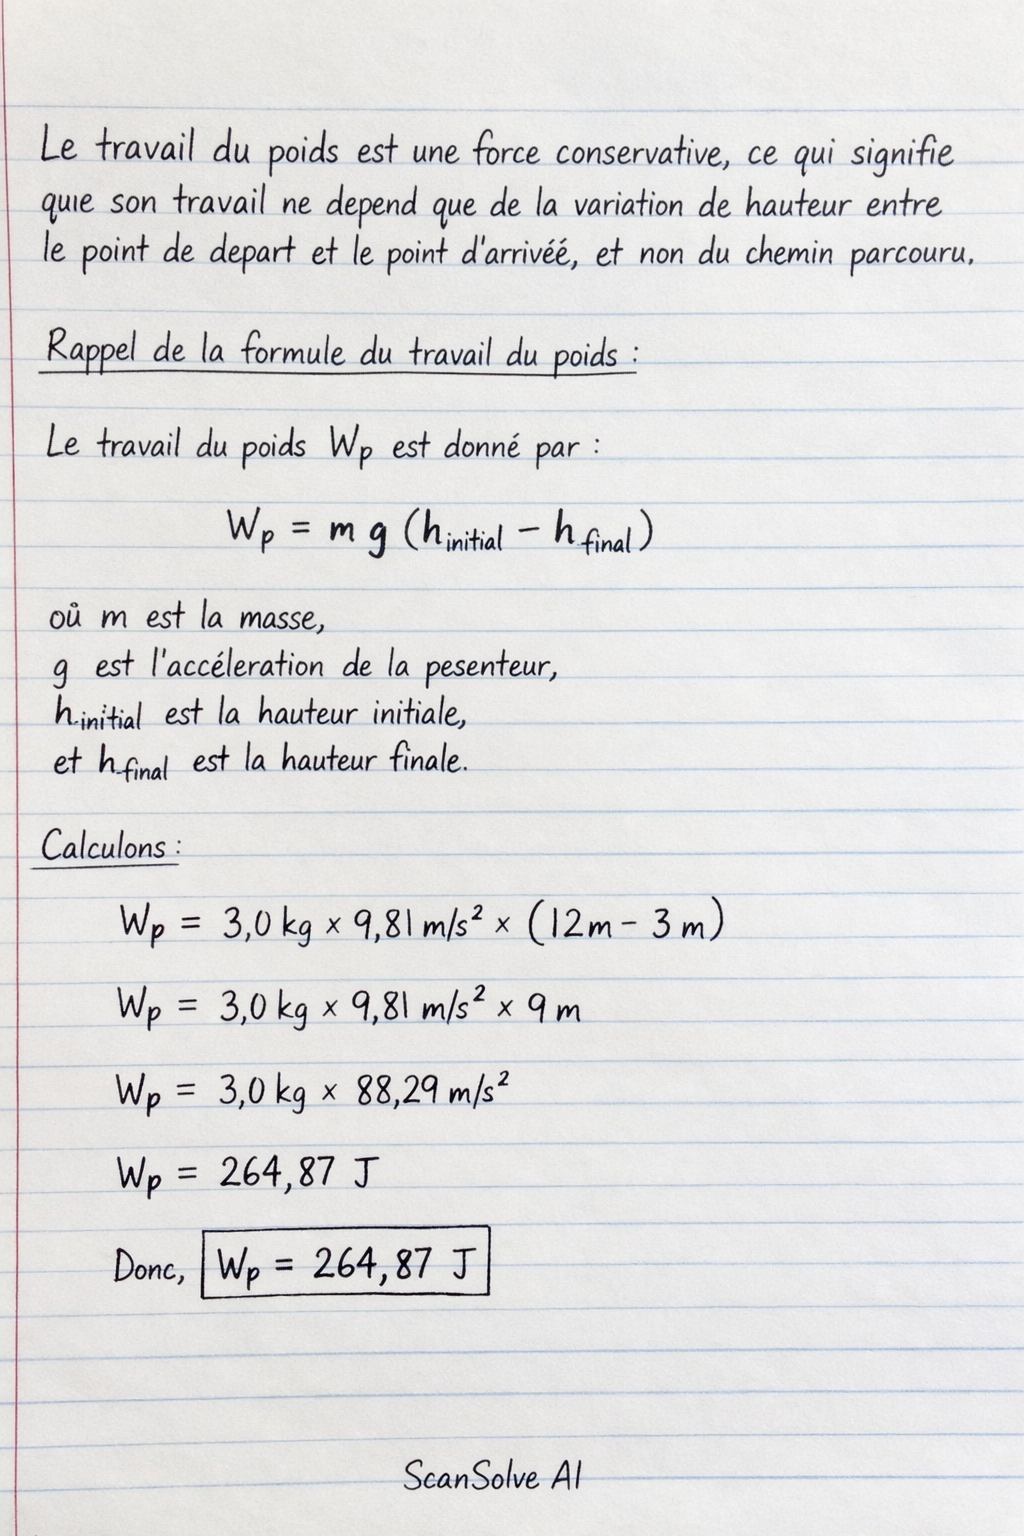 Le travail du poids est une force conservative, ce qui signifie
quıe son travail ne depend que de la variation de hauteur entre
le point de depart et le point d'arrivéé, et non du chemin parcouru.
Rappel de la formule du travail du poids :
Le travail du poids Wp est donné par :
Wp = m g (h initial − h final)
où m est la masse,
g est l'accéleration de la pesenteur,
h initial est la hauteur initiale,
et h final est la hauteur finale.
Calculons :
Wp = 3,0 kg × 9,81 m/s² × (12m − 3 m)
Wp = 3,0 kg × 9,81 m/s² × 9 m
Wp = 3,0 kg × 88,29 m/s²
Wp = 264,87 J
Donc, Wp = 264,87 J
ScanSolve AI